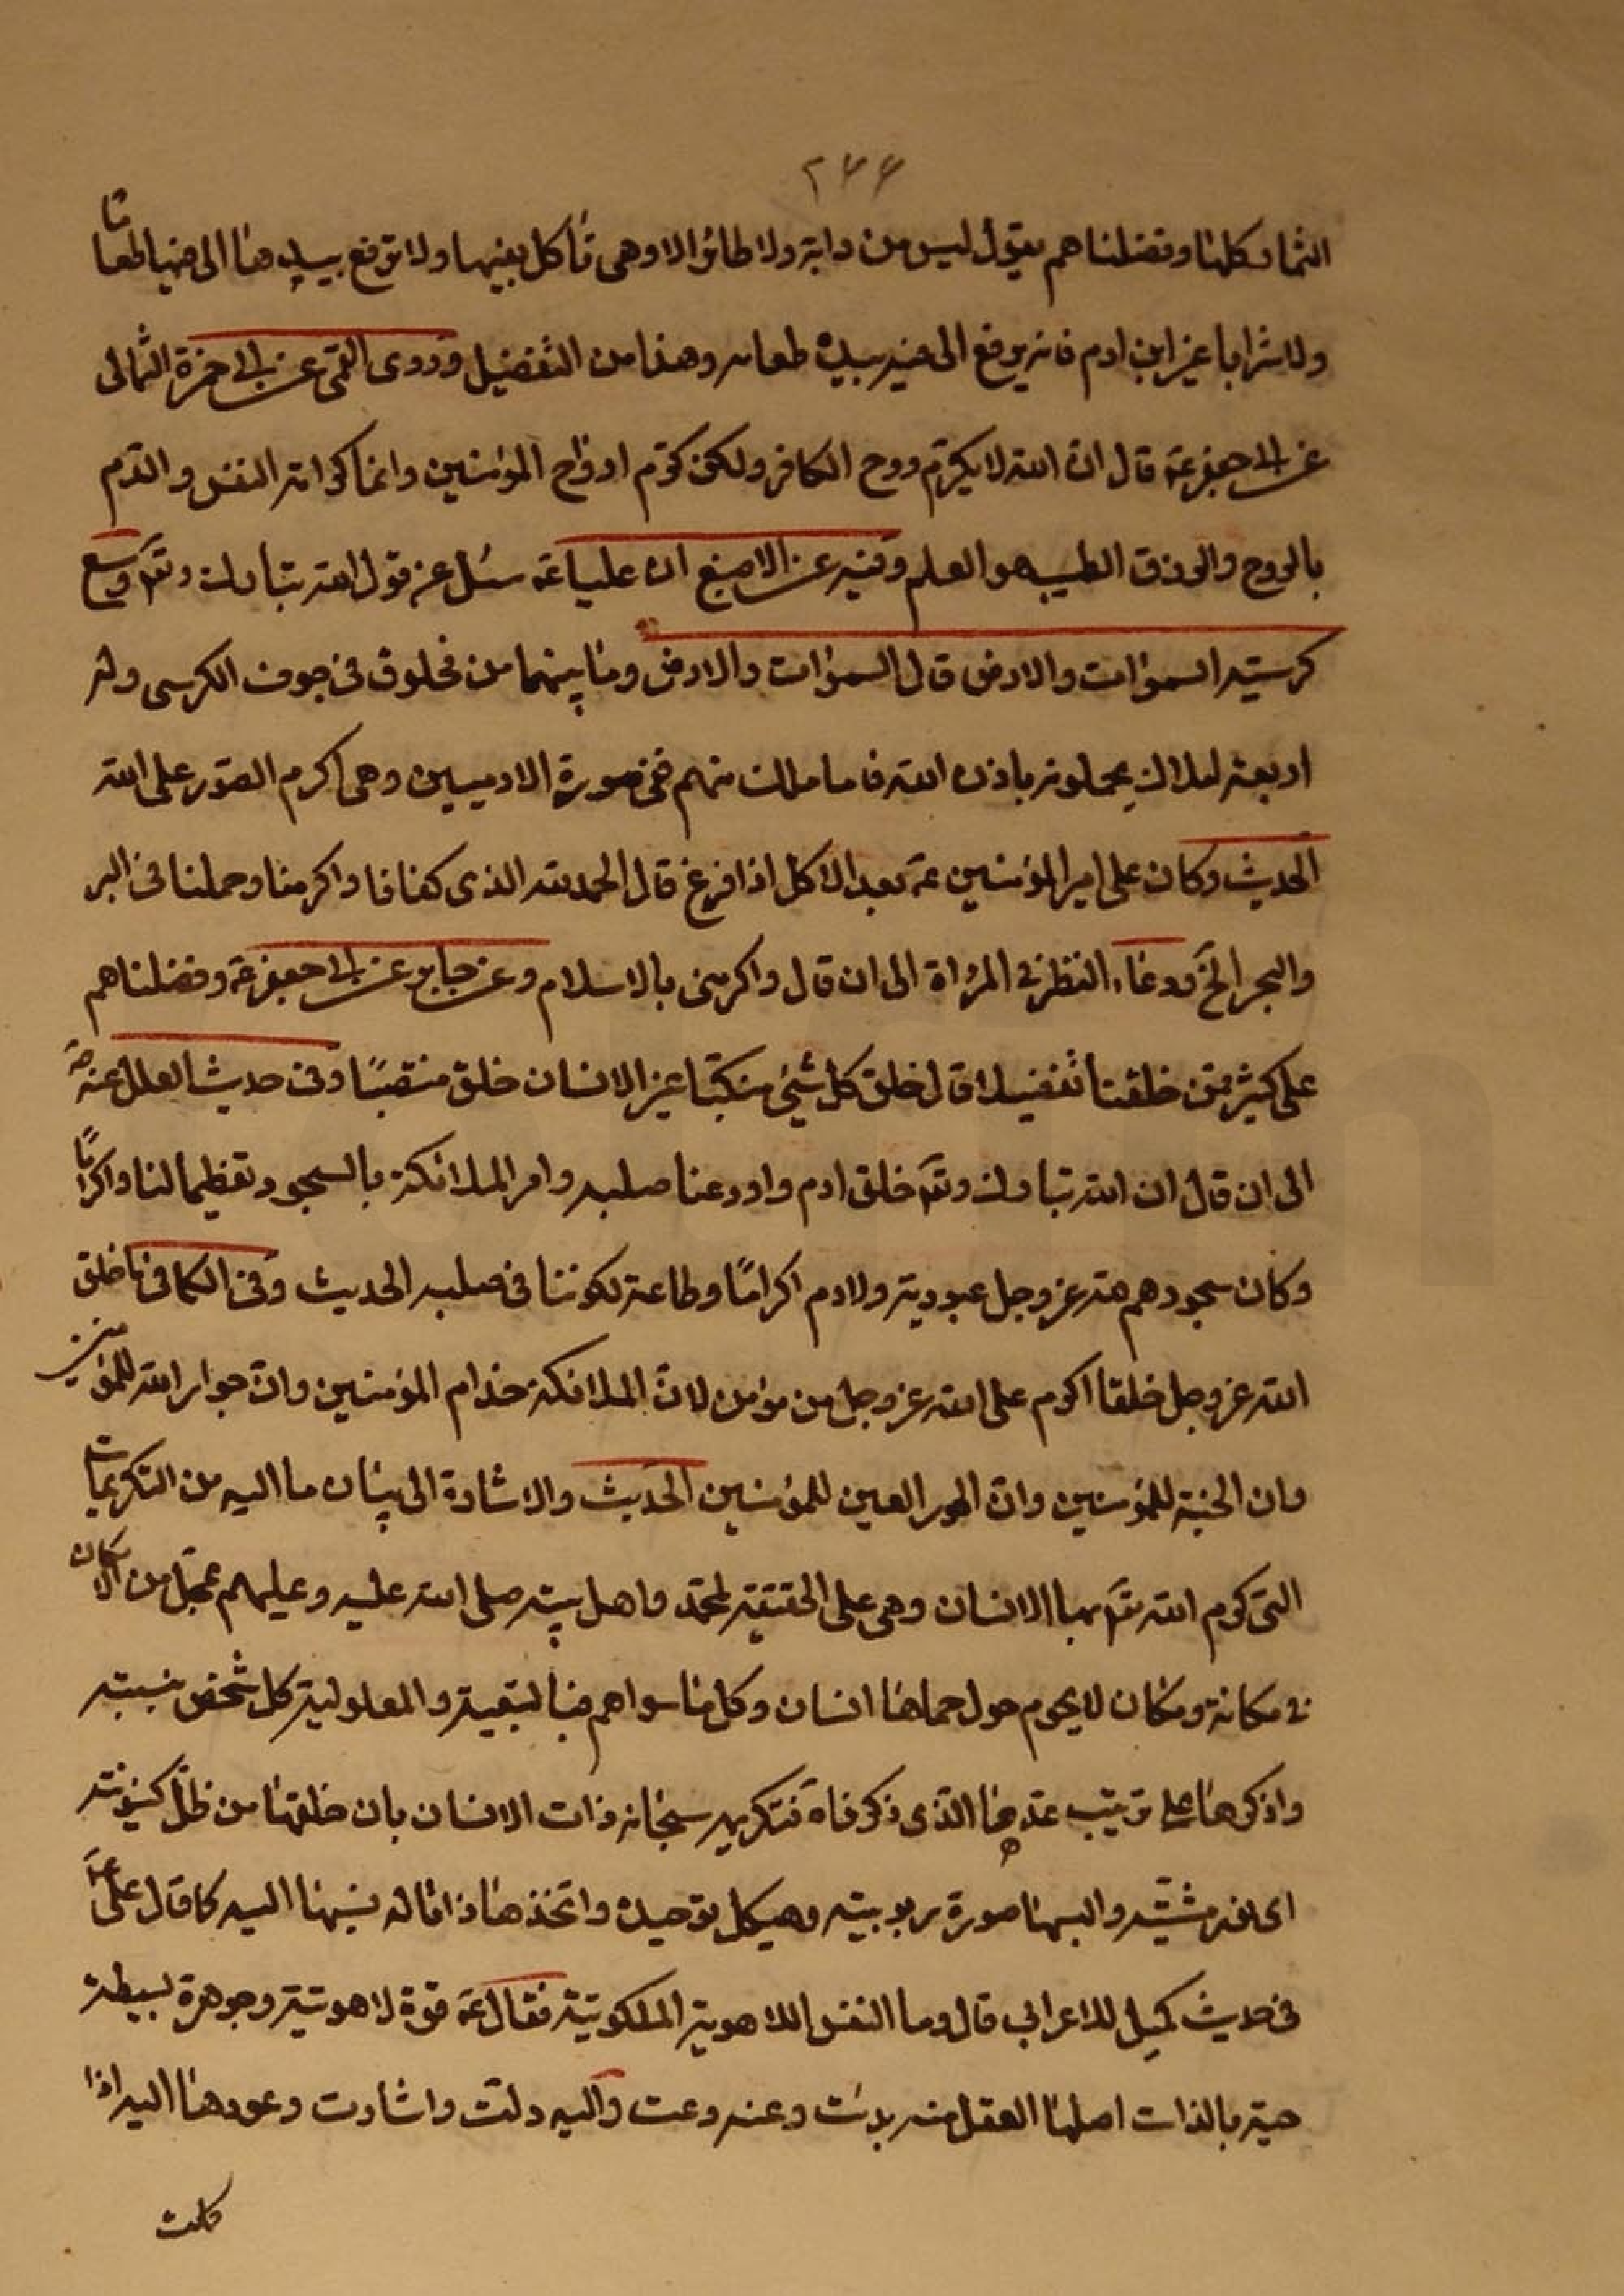 ٢٦٦
الثمار كلها وفضلناهم يقول ليس من دابة ولا طائر الا وهى تأكل بفيها ولا ترفع بيدها الى فيها طعاما
ولا شرابا غير ابن ادم فانه يرفع الى فيه بيده طعامه وهذا من التفضيل وروى القمى عن ابى حمزة الثمالى
عن ابى جعفر عه قال ان الله لا يكرّم روح الكافر ولكن كرّم ارواح المؤمنين وانما كرامة النفس والدّم
بالروح والرزق الطيب هو العلم وفيه عن الاصبغ ان علياعه سئل عن قول الله تبارك وتعَ وسع
كرسيه السموات والارض قال السموات والارض وما بينهما من مخلوق فى جوف الكرسى وله
اربعة املاك يحملونه باذن الله فاما ملك منهم ففى صورة الادميين وهى اكرم الصّور على الله
الحديث وكان على امير المؤمنين عه بعد الاكل اذا فرغ قال الحمد لله الذى كفانا واكرمنا وحملنا فى البر
والبحر الخ ودعاء النظر فى المرأة الى ان قال واكرمنى بالاسلام وعن جابر عن ابى جعفر عه وفضلناهم
على كثير ممّن خلقنا تفضيلا قال خلق كل شئ منكبّا غير الانسان خلق منتصبًا وفى حديث العلل عنه ص
الى ان قال ان الله تبارك وتعَ خلق ادم واودعنا صلبه وامر الملائكة بالسجود تعظيما لنا واكرامًا
وكان سجودهم لله عز وجل عبودية ولادم اكرامًا وطاعة لكوننا فى صلبه الحديث وفى الكافى ما خلق
الله عز وجل خلقا اكرم على الله عز وجل من مؤمن لانّ الملائكة خدام المؤمنين وانّ جوار الله للمؤمنين
وان الجنة للمؤمنين وانّ الحور العين للمؤمنين الحديث والاشارة الى بيان ما اليه من التكريمات
التى كرم الله تعَ بها الانسان وهى على الحقيقة لمحمّد واهل بيته صلى الله عليه وعليهم بمحل من الامكان
فى مكانة ومكان لا يحوم حول حماها انسان وكل ما سواهم فبالتبعية والمعلولية كل شخص بنسبته
واذكرها على ترتيب عدها الذى ذكرناه فتكريمه سبحانه ذات الانسان بان خلقها من ظلّ كينونته
اى نفس مشيّته والبسها صورة ربوبيته وهيكل توحيده واتخذها ذاتا له ينسبها اليه كما قال على عه
فى حديث كميل للاعرابى قال وما النفس اللاهوتية الملكوتية فقال عه قوّة لاهوتية وجوهرة بسيطة
حية بالذات اصلها العقل منه بدئت وعنه وعت واليه دلت واشارت وعودها اليه اذا
كملت